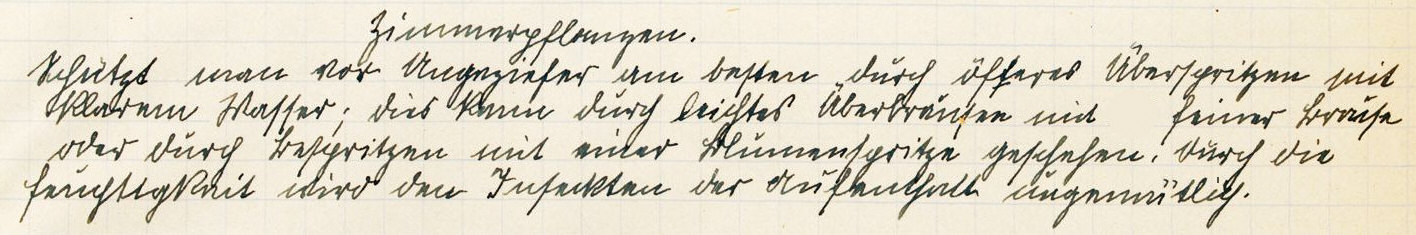 Zimmerpflanzen.
Schützt man vor Ungeziefer am besten durch öfteres Überspritzen mit
klarem Wasser; dies kann durch leichtes Überbrausen mit feiner Brause
oder durch Bespritzen mit einer Blumenspritze geschehen. Durch die
Feuchtigkeit wird den Insekten der Aufenthalt ungemütlich.